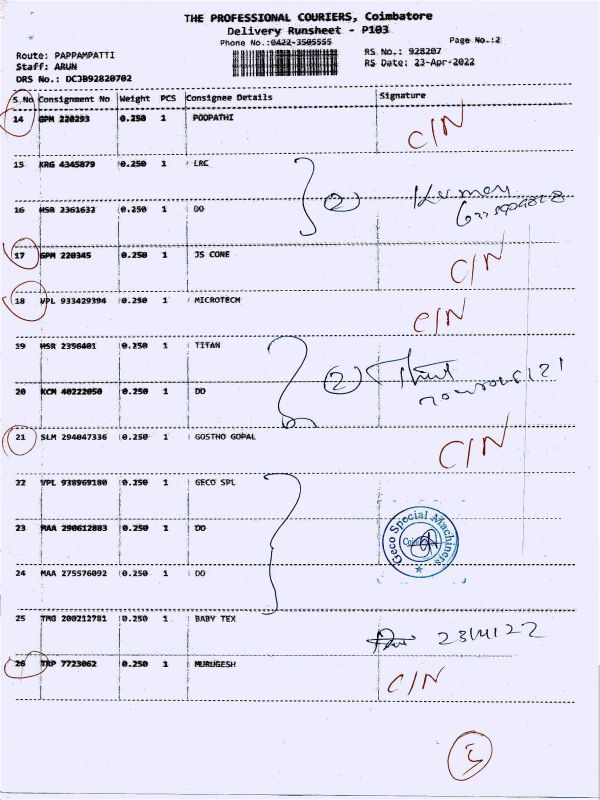 THE PROFESSIONAL COURIERS, Coimbatore
Delivery Runsheet - P103
Phone No.:0422-3505555
Page No.:2
Route: PAPPAMPATTI
RS No.: 928207
Staff: ARUN
RS Date: 23-Apr-2022
DRS No.: DCJB92820702
S.No Consignment No Weight PCS Consignee Details Signature
14 GPM 220293 0.250 1 POOPATHI C/N
15 KRG 4345879 0.250 1 LRC
16 MSR 2361632 0.250 1 DO 2
17 GPM 220345 0.250 1 JS CONE C/N
18 VPL 933429394 0.250 1 MICROTECH C/N
19 MSR 2356401 0.250 1 TITAN
20 KCM 40222050 0.250 1 DO 2
21 SLM 294047336 0.250 1 GOSTHO GOPAL C/N
22 VPL 938969180 0.250 1 GECO SPL
23 MAA 290612883 0.250 1 DO
Geco Special Machiners
24 MAA 275576092 0.250 1 DO
25 TMG 200212781 0.250 1 BABY TEX 23/4/22
26 TRP 7723062 0.250 1 MURUGESH C/N